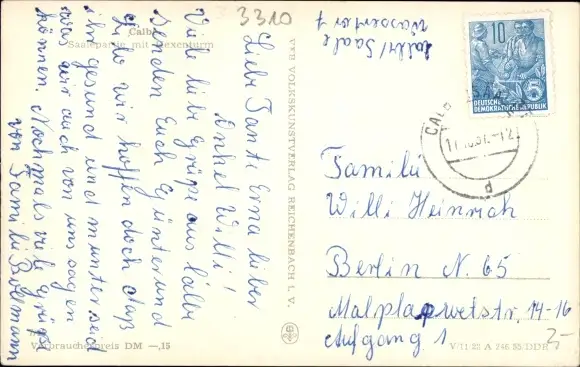 3310
Calbe/Saale
Wassertor 7
Calbe
Saalepartie mit Hexenturm
Liebe Tante Erna lieber
Onkel Willi!
Viele liebe Grüße aus Calbe
senden Euch Günter und
Lilo wir hoffen doch daß
ihr gesund und munter seid
was wir auch von uns sagen
können. Nochmals viele Grüße
von Familie Bollmann
Verbraucherpreis DM —,15
VEB VOLKSKUNSTVERLAG REICHENBACH I. V.
10
5
DEUTSCHE
DEMOKRATISCHE REPUBLIK
d
Familie
Willi Heinrich
Berlin N. 65
Malplaquetstr. 14-16
Aufgang 1
V 11 28 A 246 55 DDR